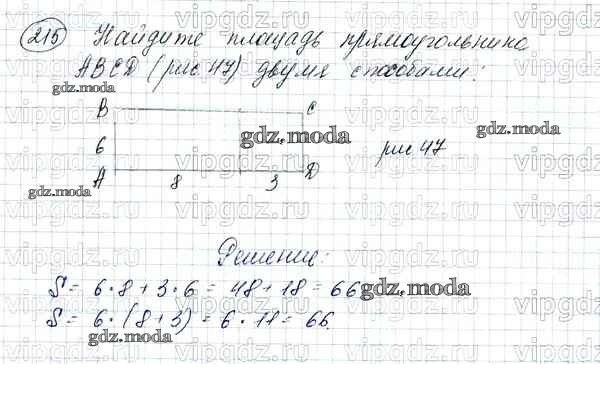 215 Найдите площадь прямоугольника
ABCD (рис 47) двумя способами:
B C
6 рис 47
A 8 3 D
Решение:
S = 6 · 8 + 3 · 6 = 48 + 18 = 66
S = 6 · (8 + 3) = 6 · 11 = 66.
gdz.moda
gdz.moda
gdz.moda
gdz.moda
gdz.moda
gdz.moda
vipgdz.ru